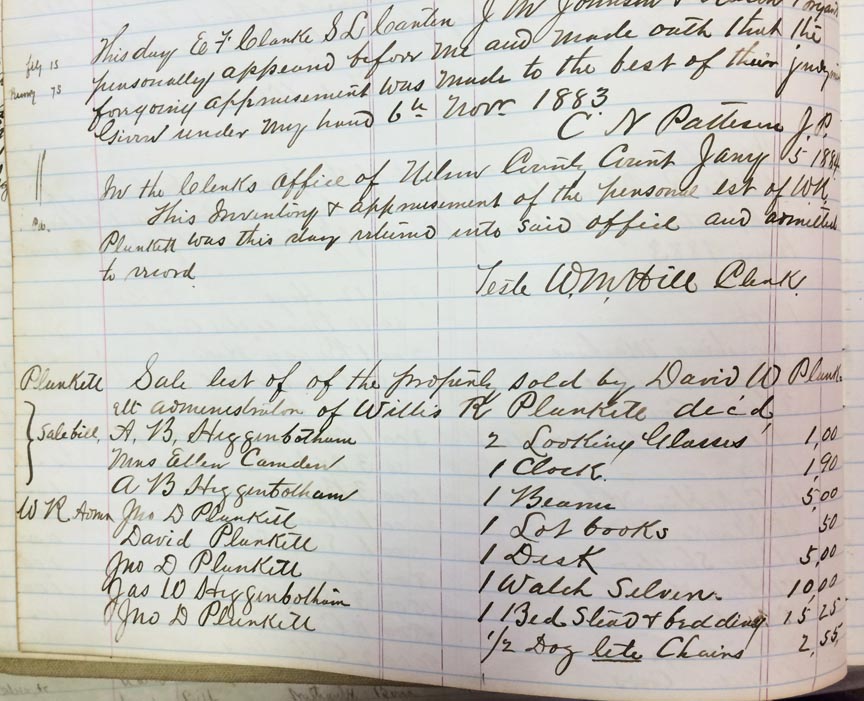 This day E F Clarke S L Carter J M Johnson &
personally appeard before me and made oath that the
forgoing apprasement was made to the best of their
Given under my hand 6th Novr 1883
C N Patteson J.P.
In the Clerks office of Nelson County Court Jany 5 1884
This Inventory & apprasement of the personal est of W R
Plunkett was this day returnd into said office and admitted
to record
Teste W. M. Hill Clerk.
Plunkett Sale list of of the property sold by David W Plunk
ett administrator of Willis R Plunkett dec'd,
Sale bill, A, B, Higgenbotham 2 Looking Glasses 1,00
Mrs Ellen Camden 1 Clock. 1,90
A B Higgenbotham 1 Beaureau 5,00
W R Admr Jno D Plunkett 1 Lot books 50
David Plunkett 1 Desk 5,00
Jno D Plunkett 1 Watch Silver. 10,00
Jas W Higgenbotham 1 Bed Stead & bedding 15 25
Jno D Plunkett 1/2 Dog lete Chains 2,55,